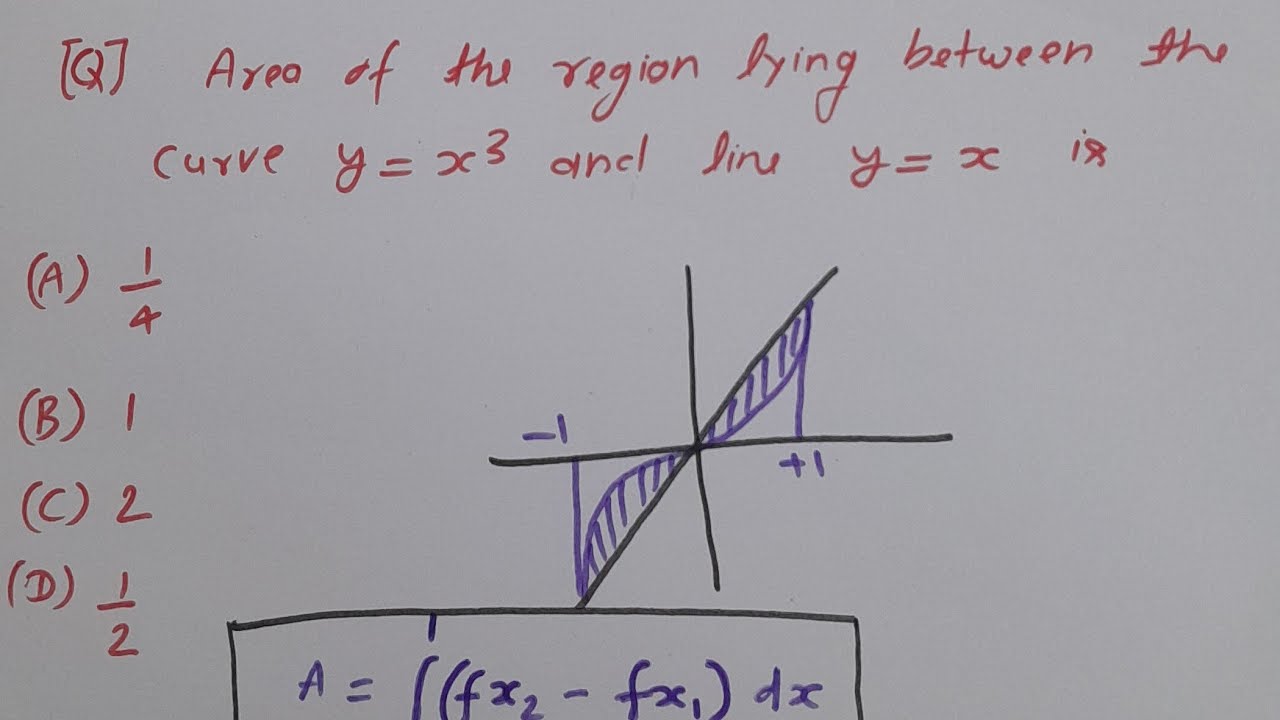 [Q] Area of the region lying between the
curve y = x³ and line y = x is
(A) 1/4
(B) 1
(C) 2
(D) 1/2
-1
+1
1
A = ∫(fx₂ - fx₁) dx